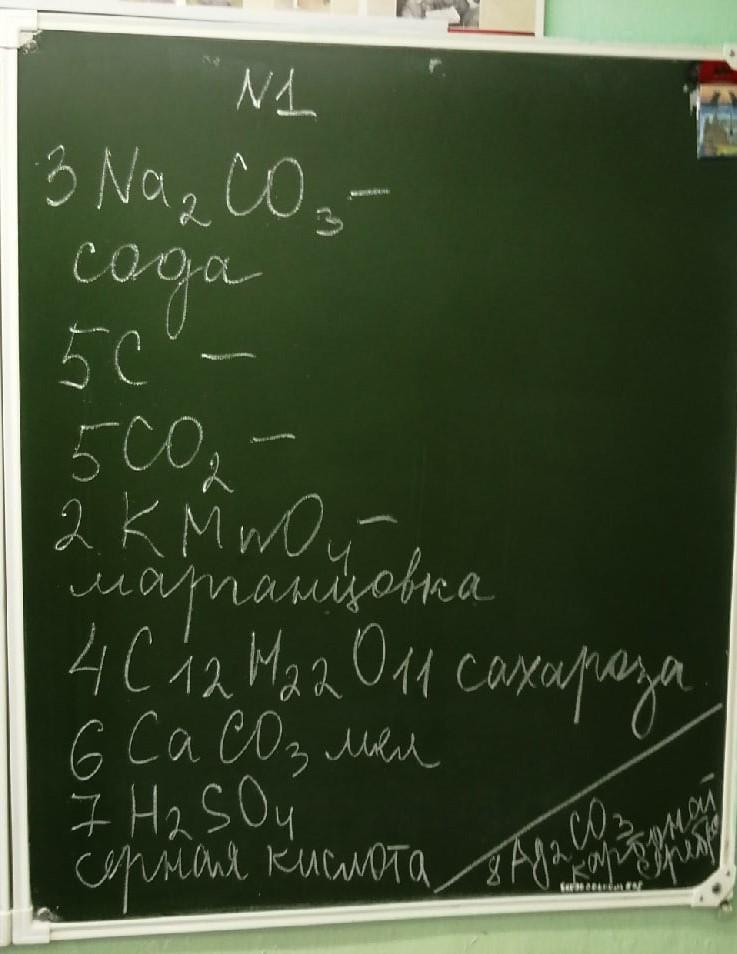 N1
3 Na2CO3 —
сода
5C —
5CO2 —
2 KMnO4 —
марганцовка
4 C12H22O11 сахароза
6 CaCO3 мел
7 H2SO4
серная кислота
8 Ag2CO3
карбонат
серебра